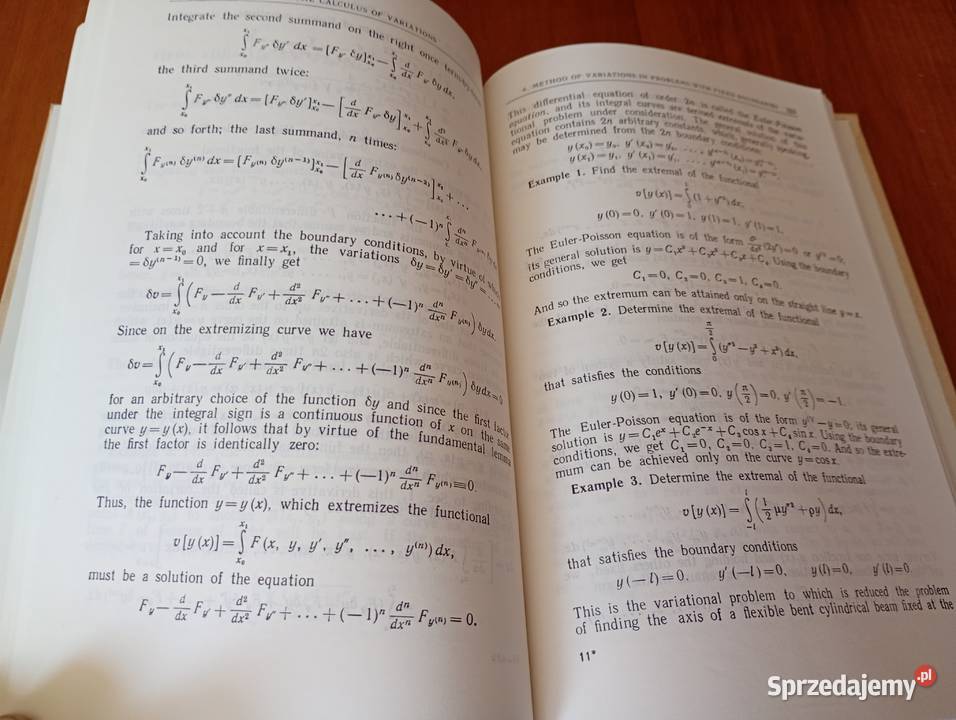 THE CALCULUS OF VARIATIONS
Integrate the second summand on the right once term-by-term
∫_{x₀}^{x₁} F_{y'} δy' dx = [F_{y'} δy]_{x₀}^{x₁} − ∫_{x₀}^{x₁} d/dx F_{y'} δy dx,
the third summand twice:
∫_{x₀}^{x₁} F_{y''} δy'' dx = [F_{y''} δy']_{x₀}^{x₁} − [d/dx F_{y''} δy]_{x₀}^{x₁} + ∫_{x₀}^{x₁} d²/dx² F_{y''} δy dx,
and so forth; the last summand, n times:
∫_{x₀}^{x₁} F_{y⁽ⁿ⁾} δy⁽ⁿ⁾ dx = [F_{y⁽ⁿ⁾} δy⁽ⁿ⁻¹⁾]_{x₀}^{x₁} − [d/dx F_{y⁽ⁿ⁾} δy⁽ⁿ⁻²⁾]_{x₀}^{x₁} + ...
... + (−1)ⁿ ∫_{x₀}^{x₁} dⁿ/dxⁿ F_{y⁽ⁿ⁾} δy dx.
Taking into account the boundary conditions, by virtue of which
for x = x₀ and for x = x₁, the variations δy = δy' = δy'' = ...
= δy⁽ⁿ⁻¹⁾ = 0, we finally get
δv = ∫_{x₀}^{x₁} (F_y − d/dx F_{y'} + d²/dx² F_{y''} + ... + (−1)ⁿ dⁿ/dxⁿ F_{y⁽ⁿ⁾}) δy dx.
Since on the extremizing curve we have
δv = ∫_{x₀}^{x₁} (F_y − d/dx F_{y'} + d²/dx² F_{y''} + ... + (−1)ⁿ dⁿ/dxⁿ F_{y⁽ⁿ⁾}) δy dx = 0
for an arbitrary choice of the function δy and since the first factor
under the integral sign is a continuous function of x on the same
curve y = y(x), it follows that by virtue of the fundamental lemma
the first factor is identically zero:
F_y − d/dx F_{y'} + d²/dx² F_{y''} + ... + (−1)ⁿ dⁿ/dxⁿ F_{y⁽ⁿ⁾} ≡ 0.
Thus, the function y = y(x), which extremizes the functional
v[y(x)] = ∫_{x₀}^{x₁} F(x, y, y', y'', ..., y⁽ⁿ⁾) dx,
must be a solution of the equation
F_y − d/dx F_{y'} + d²/dx² F_{y''} + ... + (−1)ⁿ dⁿ/dxⁿ F_{y⁽ⁿ⁾} = 0.
METHOD OF VARIATIONS IN PROBLEMS WITH FIXED BOUNDARIES
This differential equation of order 2n is called the Euler-Poisson
equation, and its integral curves are termed extremals of the varia-
tional problem under consideration. The general solution of this
equation contains 2n arbitrary constants, which, generally speaking,
may be determined from the 2n boundary conditions:
y(x₀) = y₀, y'(x₀) = y'₀, ..., y⁽ⁿ⁻¹⁾(x₀) = y₀⁽ⁿ⁻¹⁾;
y(x₁) = y₁, y'(x₁) = y'₁, ..., y⁽ⁿ⁻¹⁾(x₁) = y₁⁽ⁿ⁻¹⁾.
Example 1. Find the extremal of the functional
v[y(x)] = ∫_0^1 (1 + y''²) dx,
y(0) = 0, y'(0) = 1, y(1) = 1, y'(1) = 1.
The Euler-Poisson equation is of the form d²/dx² (2y'') = 0 or yᴵⱽ = 0;
its general solution is y = C₁x³ + C₂x² + C₃x + C₄. Using the boundary
conditions, we get
C₁ = 0, C₂ = 0, C₃ = 1, C₄ = 0.
And so the extremum can be attained only on the straight line y = x.
Example 2. Determine the extremal of the functional
v[y(x)] = ∫_0^{π/2} (y''² − y² + x²) dx,
that satisfies the conditions
y(0) = 1, y'(0) = 0, y(π/2) = 0, y'(π/2) = −1.
The Euler-Poisson equation is of the form yᴵⱽ − y = 0; its general
solution is y = C₁eˣ + C₂e⁻ˣ + C₃ cos x + C₄ sin x. Using the boundary
conditions, we get C₁ = 0, C₂ = 0, C₃ = 1, C₄ = 0. And so the extre-
mum can be achieved only on the curve y = cos x.
Example 3. Determine the extremal of the functional
v[y(x)] = ∫_{−l}^{l} (1/2 μy''² + ρy) dx,
that satisfies the boundary conditions
y(−l) = 0, y'(−l) = 0, y(l) = 0, y'(l) = 0.
This is the variational problem to which is reduced the problem
of finding the axis of a flexible bent cylindrical beam fixed at the
11*
Sprzedajemy.pl